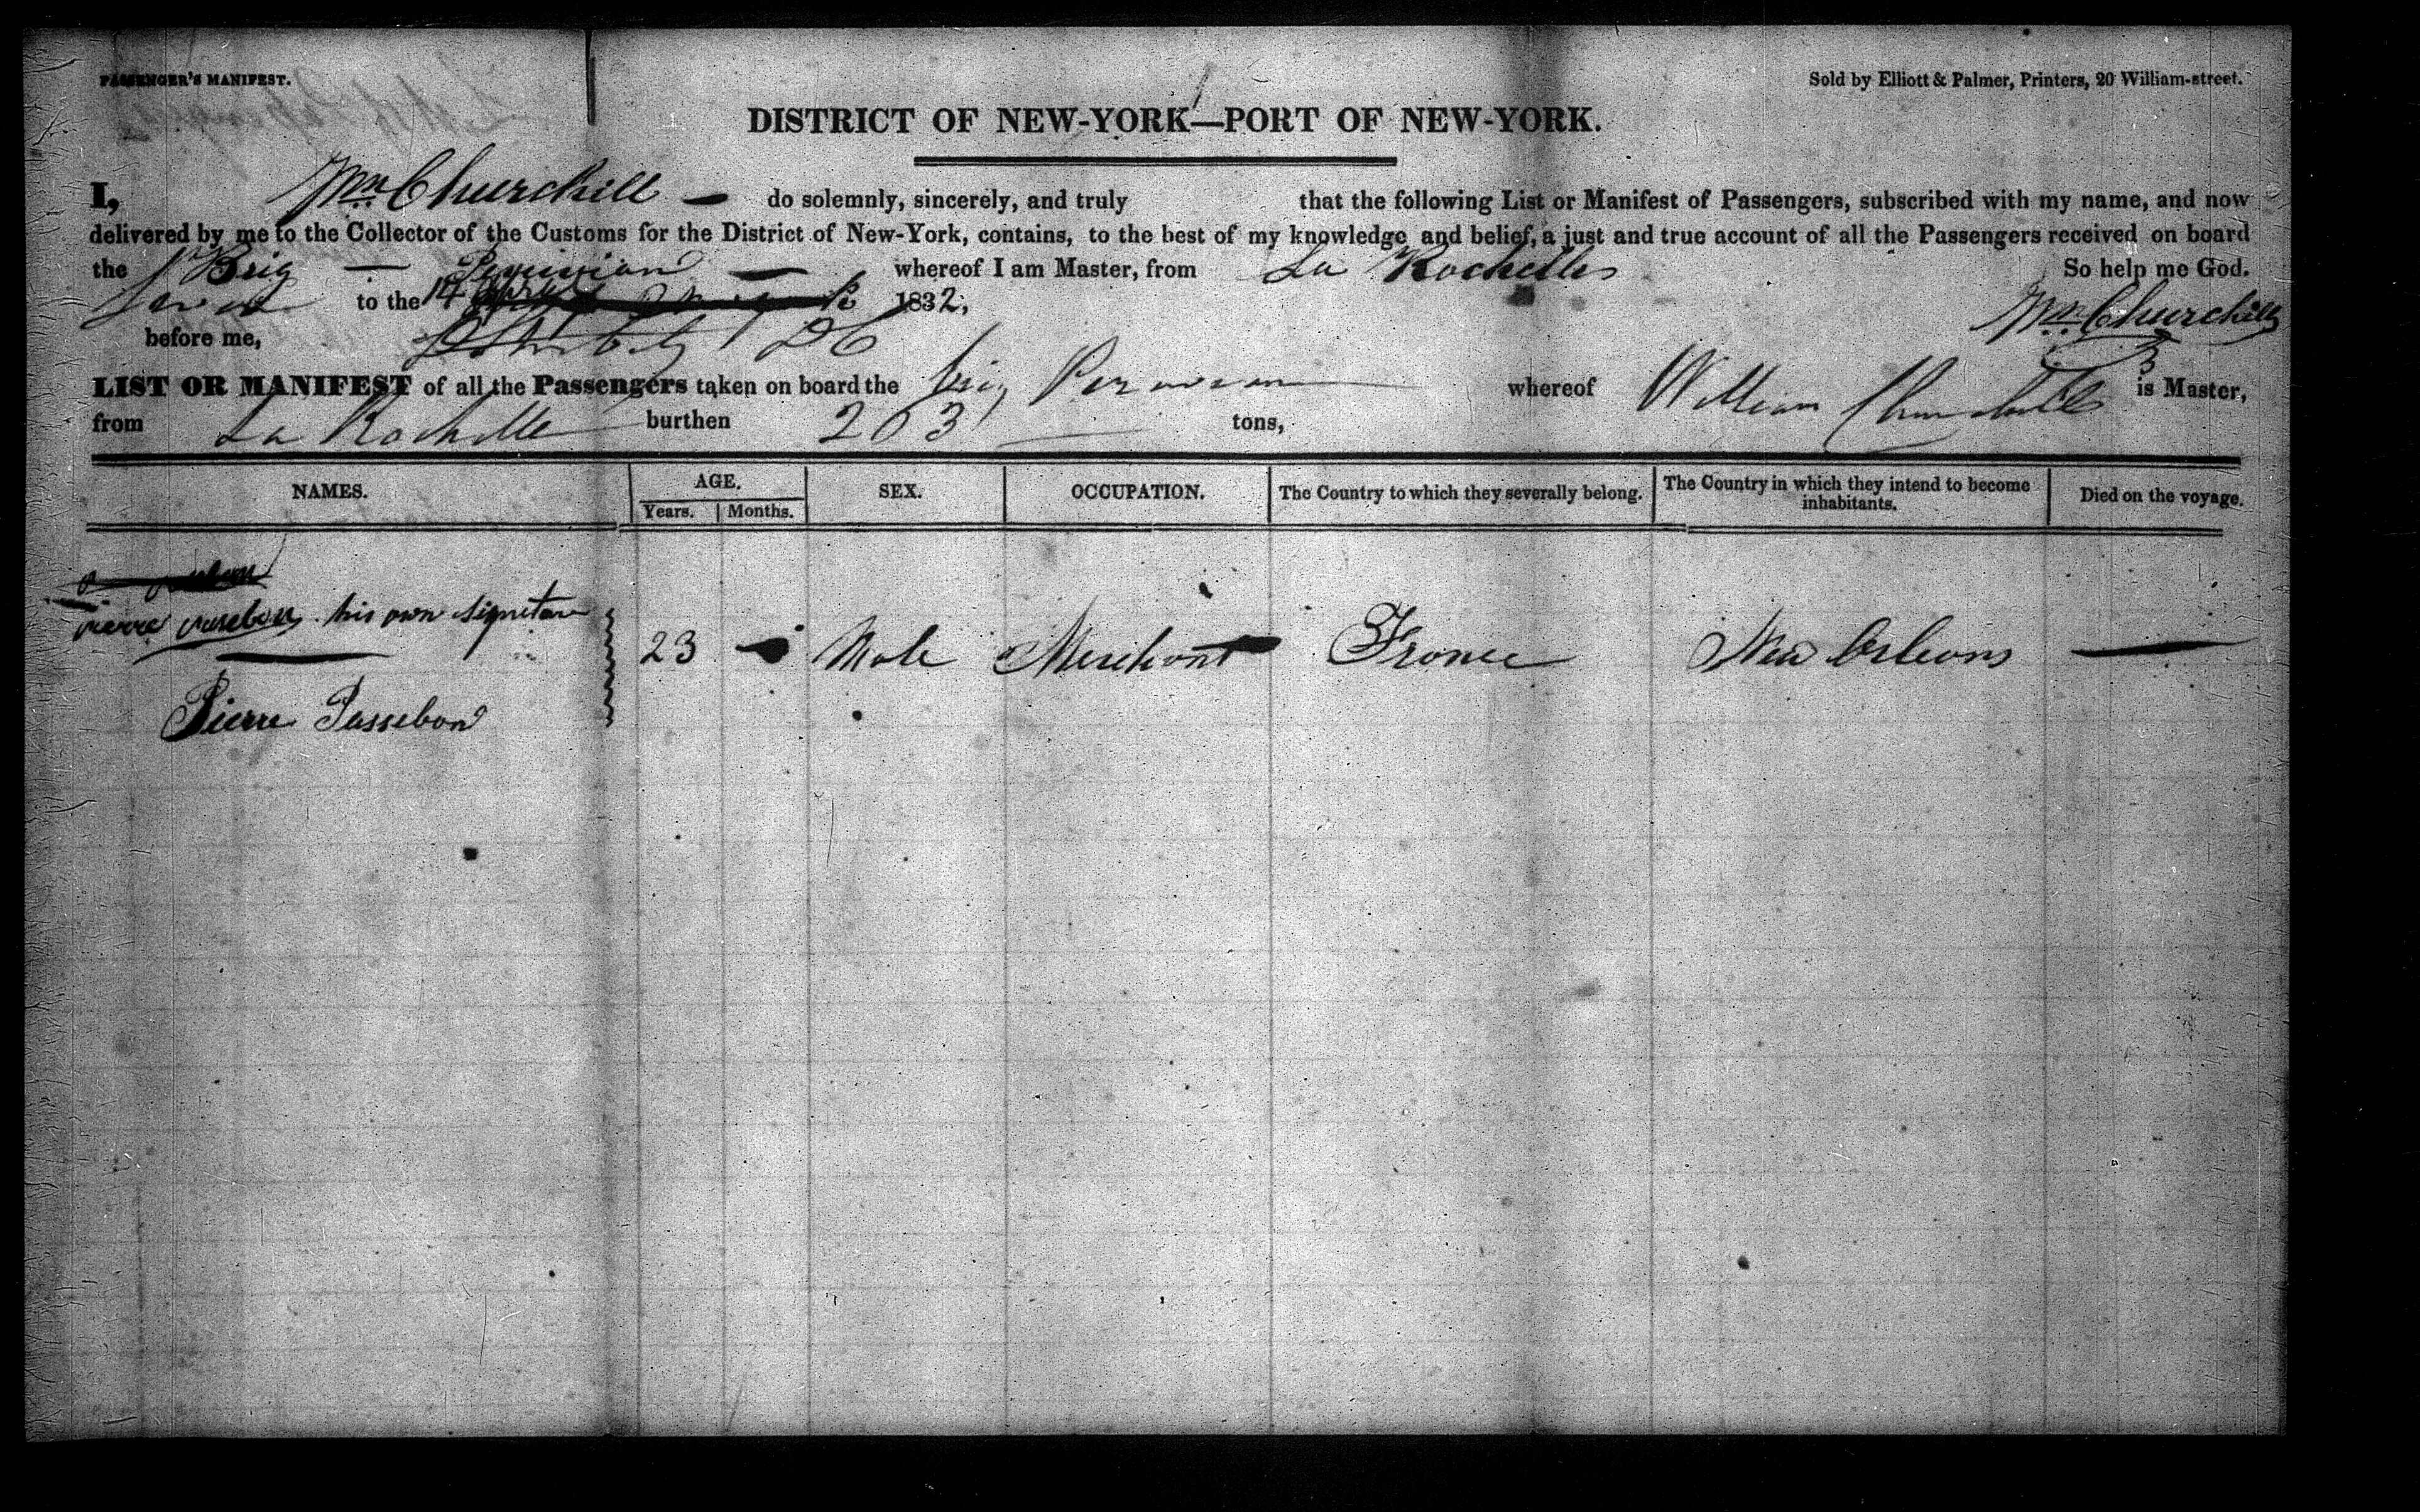 PASSENGER'S MANIFEST.
Sold by Elliott & Palmer, Printers, 20 William-street.
DISTRICT OF NEW-YORK—PORT OF NEW-YORK.
I, Wm Churchill — do solemnly, sincerely, and truly that the following List or Manifest of Passengers, subscribed with my name, and now
delivered by me to the Collector of the Customs for the District of New-York, contains, to the best of my knowledge and belief, a just and true account of all the Passengers received on board
the Brig — Peruvian — whereof I am Master, from La Rochelle So help me God.
to the 14 1832,
Wm Churchill
before me,
LIST OR MANIFEST of all the Passengers taken on board the brig Peruvian whereof William Churchill is Master,
from La Rochelle burthen 203 tons,
NAMES. AGE. SEX. OCCUPATION. The Country to which they severally belong. The Country in which they intend to become inhabitants. Died on the voyage.
Years. Months.
pierre passebon his own signature
23 — Male Merchant France New Orleans —
Pierre Passebon